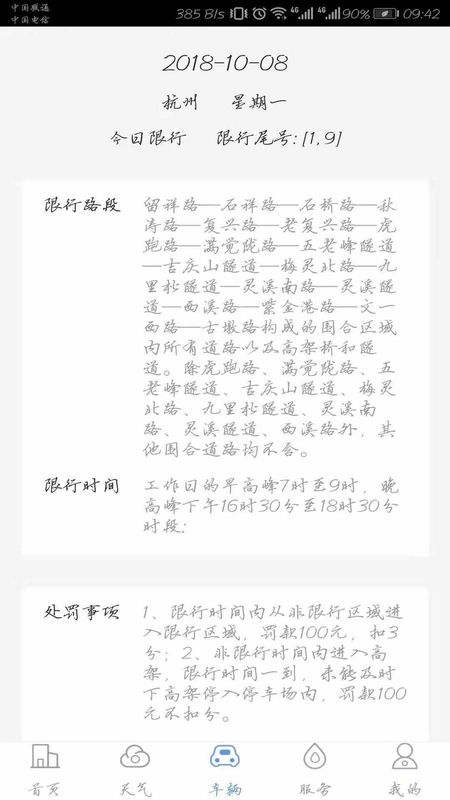 中国联通
中国电信
385 B/s
4G
4G
90%
09:42
2018-10-08
杭州 星期一
今日限行 限行尾号:[1,9]
限行路段
留祥路—石祥路—石桥路—秋
涛路—复兴路—老复兴路—虎
跑路—满觉陇路—五老峰隧道
—吉庆山隧道—梅灵北路—九
里松隧道—灵溪南路—灵溪隧
道—西溪路—紫金港路—文一
西路—古墩路构成的围合区域
内所有道路以及高架桥和隧
道。除虎跑路、满觉陇路、五
老峰隧道、吉庆山隧道、梅灵
北路、九里松隧道、灵溪南
路、灵溪隧道、西溪路外，其
他围合道路均不含。
限行时间
工作日的早高峰7时至9时，晚
高峰下午16时30分至18时30分
时段；
处罚事项
1、限行时间内从非限行区域进
入限行区域，罚款100元，扣3
分；2、非限行时间内进入高
架，限行时间一到，未能及时
下高架停入停车场内，罚款100
元不扣分。
首页 天气 车辆 服务 我的